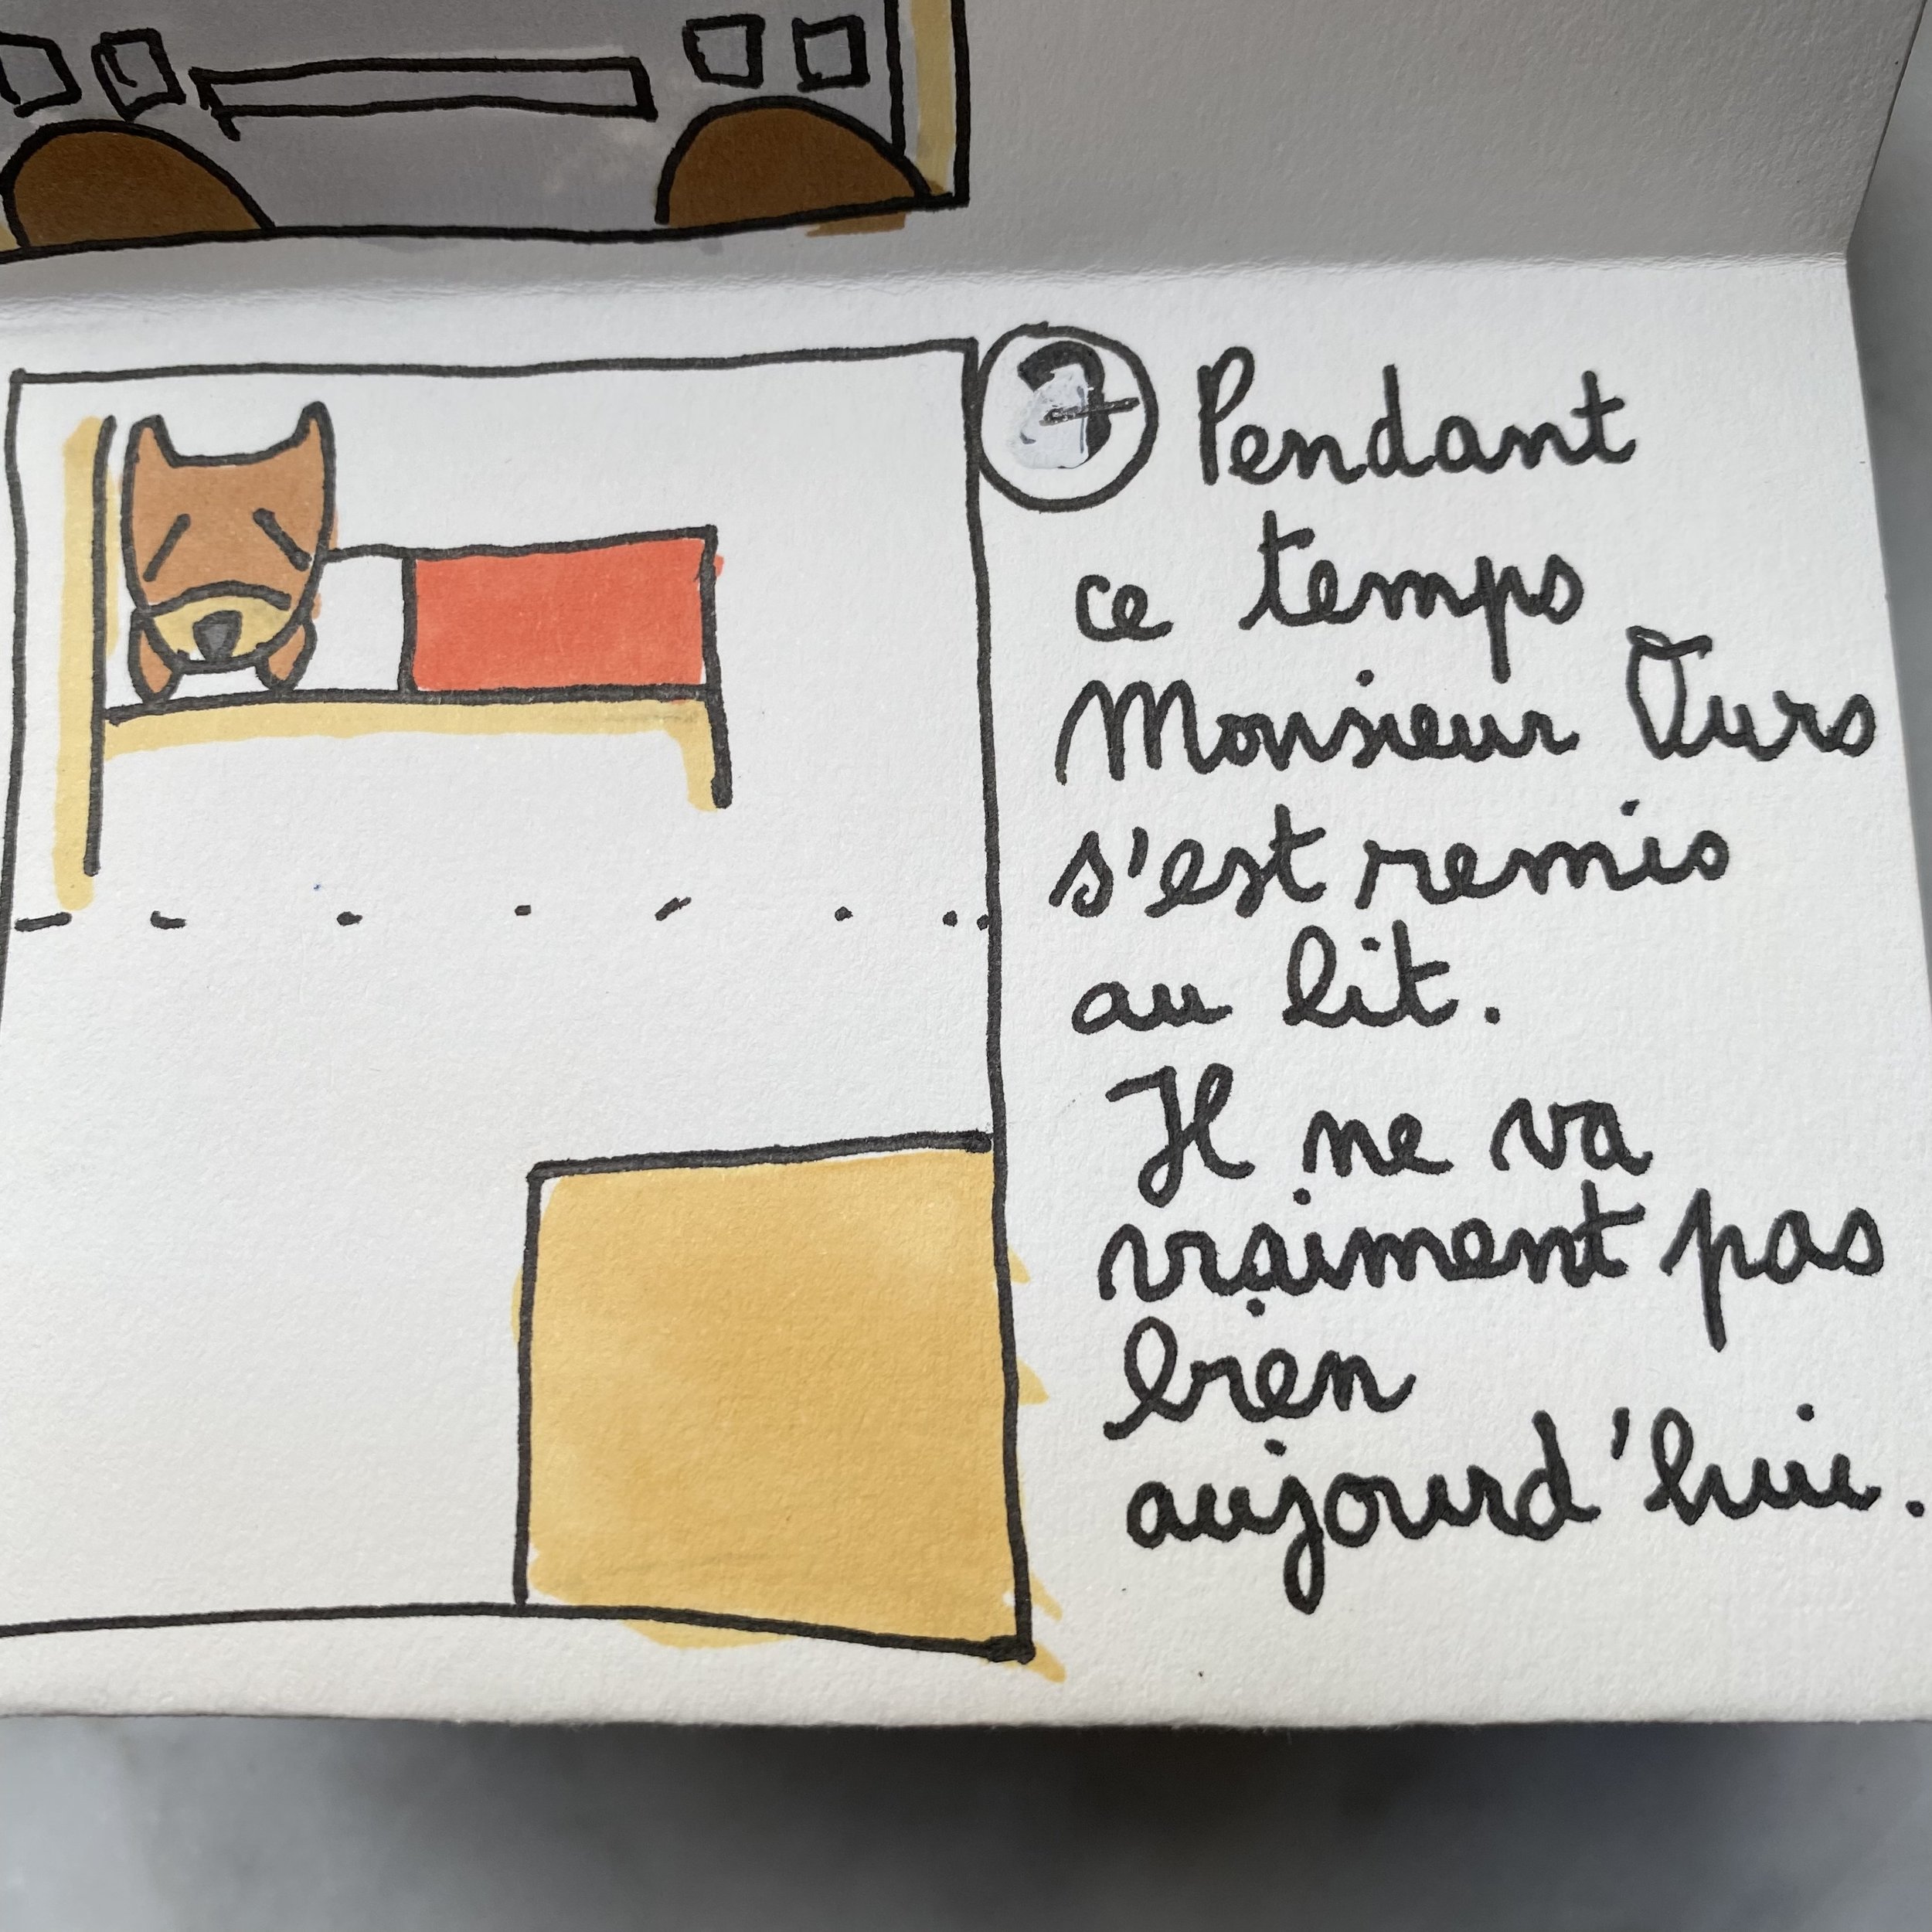 7 Pendant
ce temps
Monsieur Ours
s'est remis
au lit.
Il ne va
vraiment pas
bien
aujourd'hui.